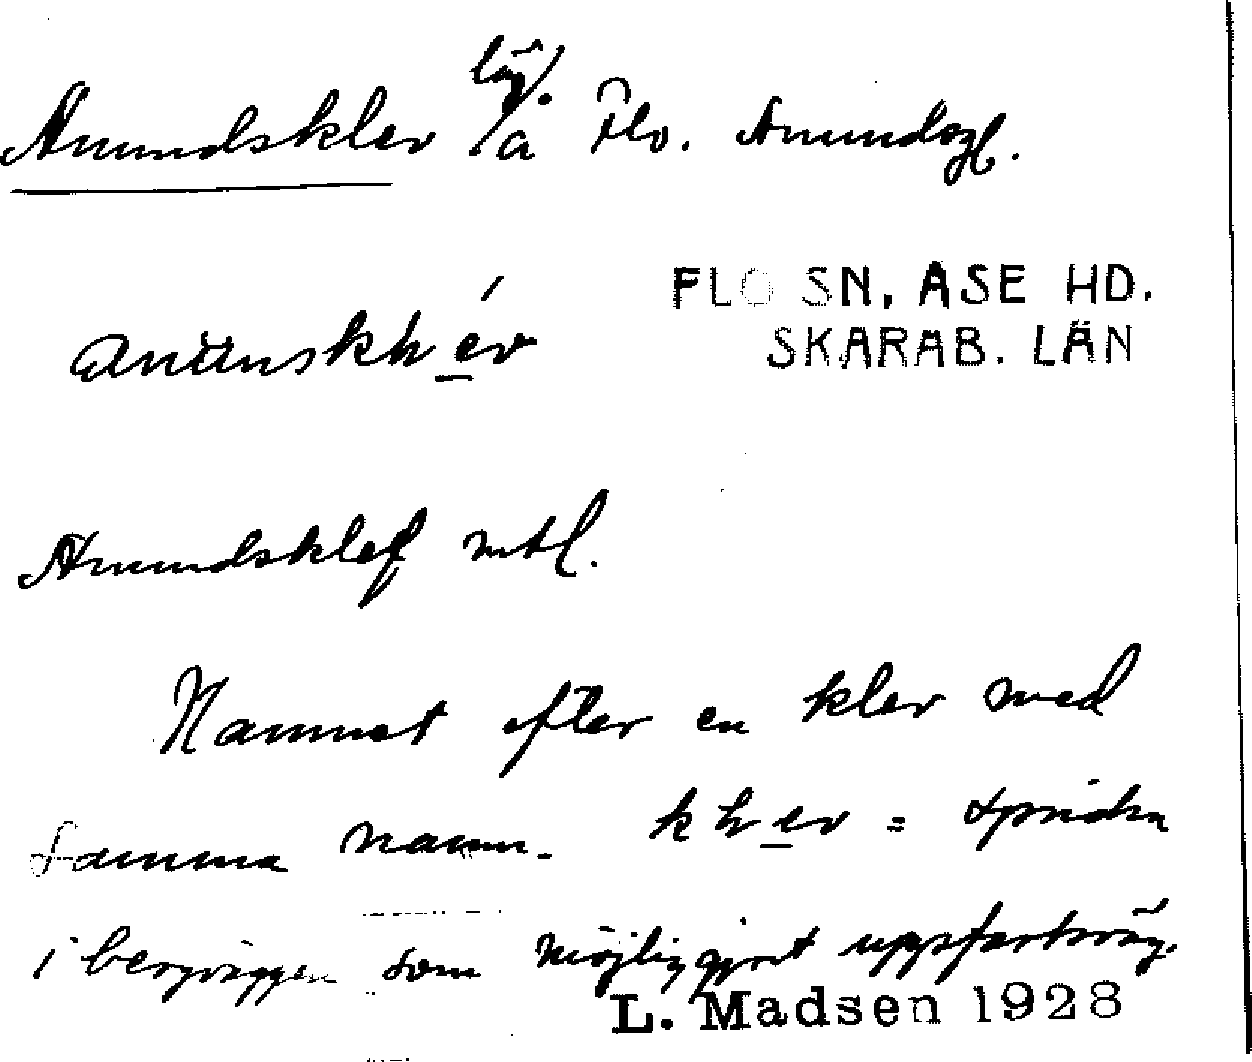 Amundsklev läg. /a Flo. Amundsgd.
FLO SN. ÅSE HD.
SKARAB. LÄN
Amundsklef mtl.
Namnet efter en klev med
samma namn. = spricka
i bergväggen som möjliggjort uppfartsväg.
L. Madsen 1928